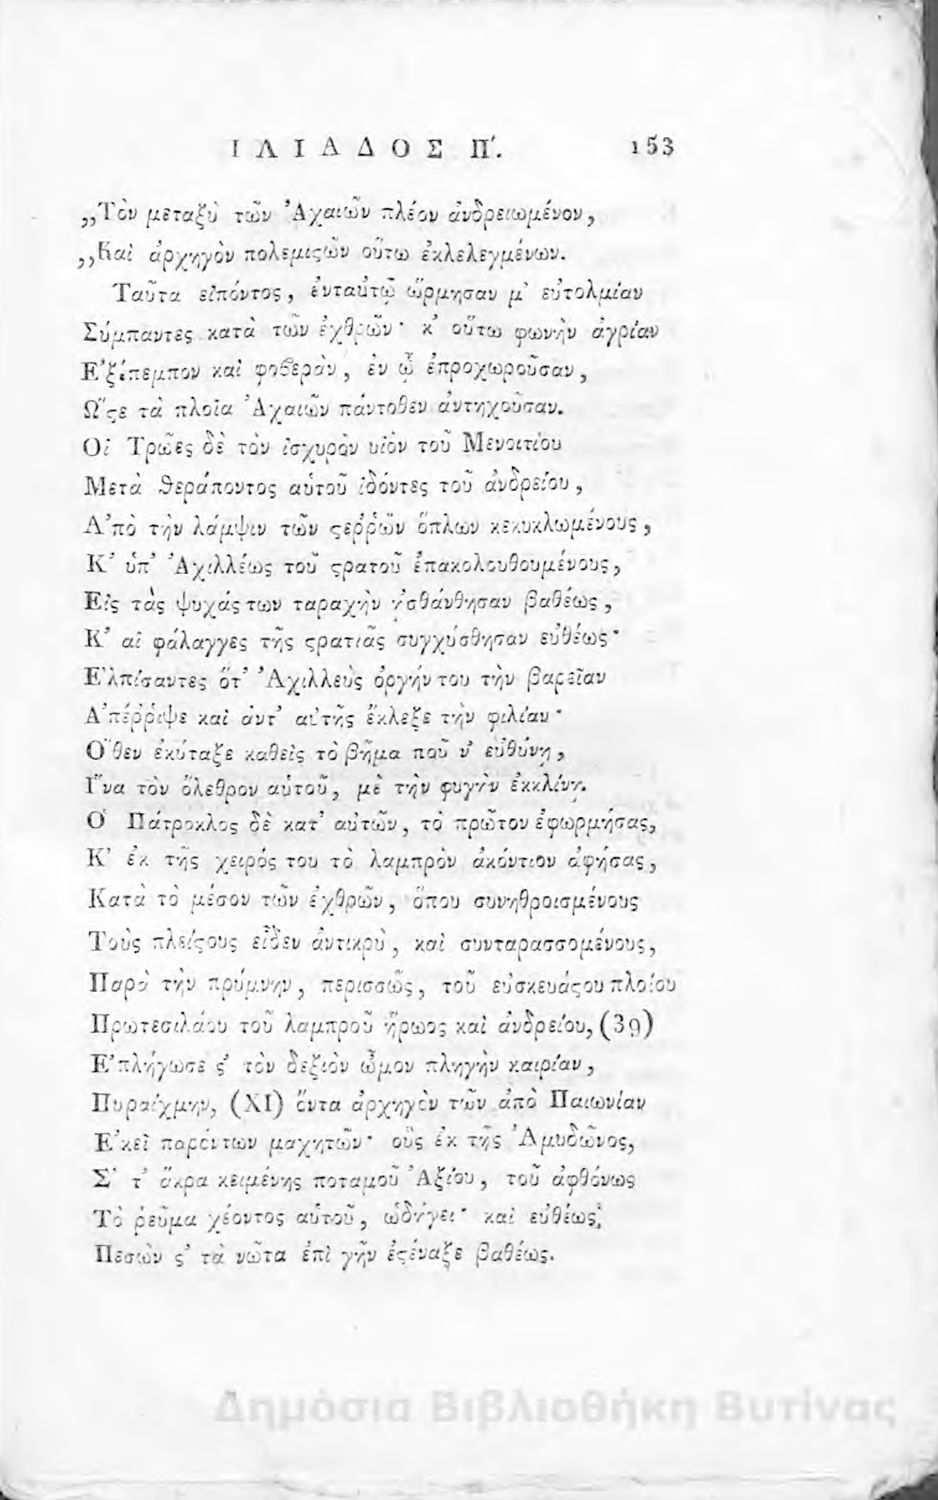 ΙΛΙΑΔΟΣ Π΄. 153
„Τὸν μεταξὺ τῶν Ἀχαιῶν πλέον ἀνδρειωμένον,
„Καὶ ἀρχηγὸν πολεμιςῶν οὕτω ἐκλελεγμένων.
Ταῦτα εἰπόντος, ἐνταὐτῷ ὥρμησαν μ' εὐτολμίαν
Σύμπαντες κατὰ τῶν ἐχθρῶν· κ' οὕτω φωνὴν ἀγρίαν
Ἐξέπεμπον καὶ φοβερὰν, ἐν ᾧ ἐπροχωροῦσαν,
Ὥςε τὰ πλοῖα Ἀχαιῶν πάντοθεν ἀντηχοῦσαν.
Οἱ Τρῶες δὲ τὸν ἰσχυρὸν υἱὸν τοῦ Μενοιτίου
Μετὰ θεράποντος αὑτοῦ ἰδόντες τοῦ ἀνδρείου,
Ἀπὸ τὴν λάμψιν τῶν ςεῤῥῶν ὅπλων κεκυκλωμένους,
Κ' ὑπ' Ἀχιλλέως τοῦ ςρατοῦ ἐπακολουθουμένους,
Εἰς τὰς ψυχάς των ταραχὴν ᾐσθάνθησαν βαθέως,
Κ' αἱ φάλαγγες τῆς ςρατιᾶς συγχύσθησαν εὐθέως·
Ἐλπίσαντες ὅτ' Ἀχιλλεὺς ὀργήν του τὴν βαρεῖαν
Ἀπέῤῥιψε καὶ ἀντ' αὐτῆς ἔκλεξε τὴν φιλίαν·
Ὅθεν ἐκύταξε καθεὶς τὸ βῆμα ποῦ ν' εὐθύνῃ,
Ἵνα τὸν ὄλεθρον αὑτοῦ, μὲ τὴν φυγὴν ἐκκλίνῃ.
Ὁ Πάτροκλος δὲ κατ' αὐτῶν, τὸ πρῶτον ἐφωρμήσας,
Κ' ἐκ τῆς χειρός του τὸ λαμπρὸν ἀκόντιον ἀφήσας,
Κατὰ τὸ μέσον τῶν ἐχθρῶν, ὅπου συνηθροισμένους
Τοὺς πλείςους εἶδεν ἀντικρὺ, καὶ συνταρασσομένους,
Παρὰ τὴν πρύμνην, περισσῶς, τοῦ εὐσκευάςου πλοίου
Πρωτεσιλάου τοῦ λαμπροῦ ἥρωος καὶ ἀνδρείου, (39)
Ἐπλήγωσε ς' τὸν δεξιὸν ὦμον πληγὴν καιρίαν,
Πυραίχμην, (XI) ὄντα ἀρχηγὸν τῶν ἀπὸ Παιωνίαν
Ἐκεῖ παρόντων μαχητῶν· οὓς ἐκ τῆς Ἀμυδῶνος,
Σ' τ' ἄκρα κειμένης ποταμοῦ Ἀξίου, τοῦ ἀφθόνως
Τὸ ῥεῦμα χέοντος αὑτοῦ, ὡδήγει· καὶ εὐθέως,
Πεσὼν ς' τὰ νῶτα ἐπὶ γῆν ἐςέναξε βαθέως.
Δημόσια Βιβλιοθήκη Βυτίνας